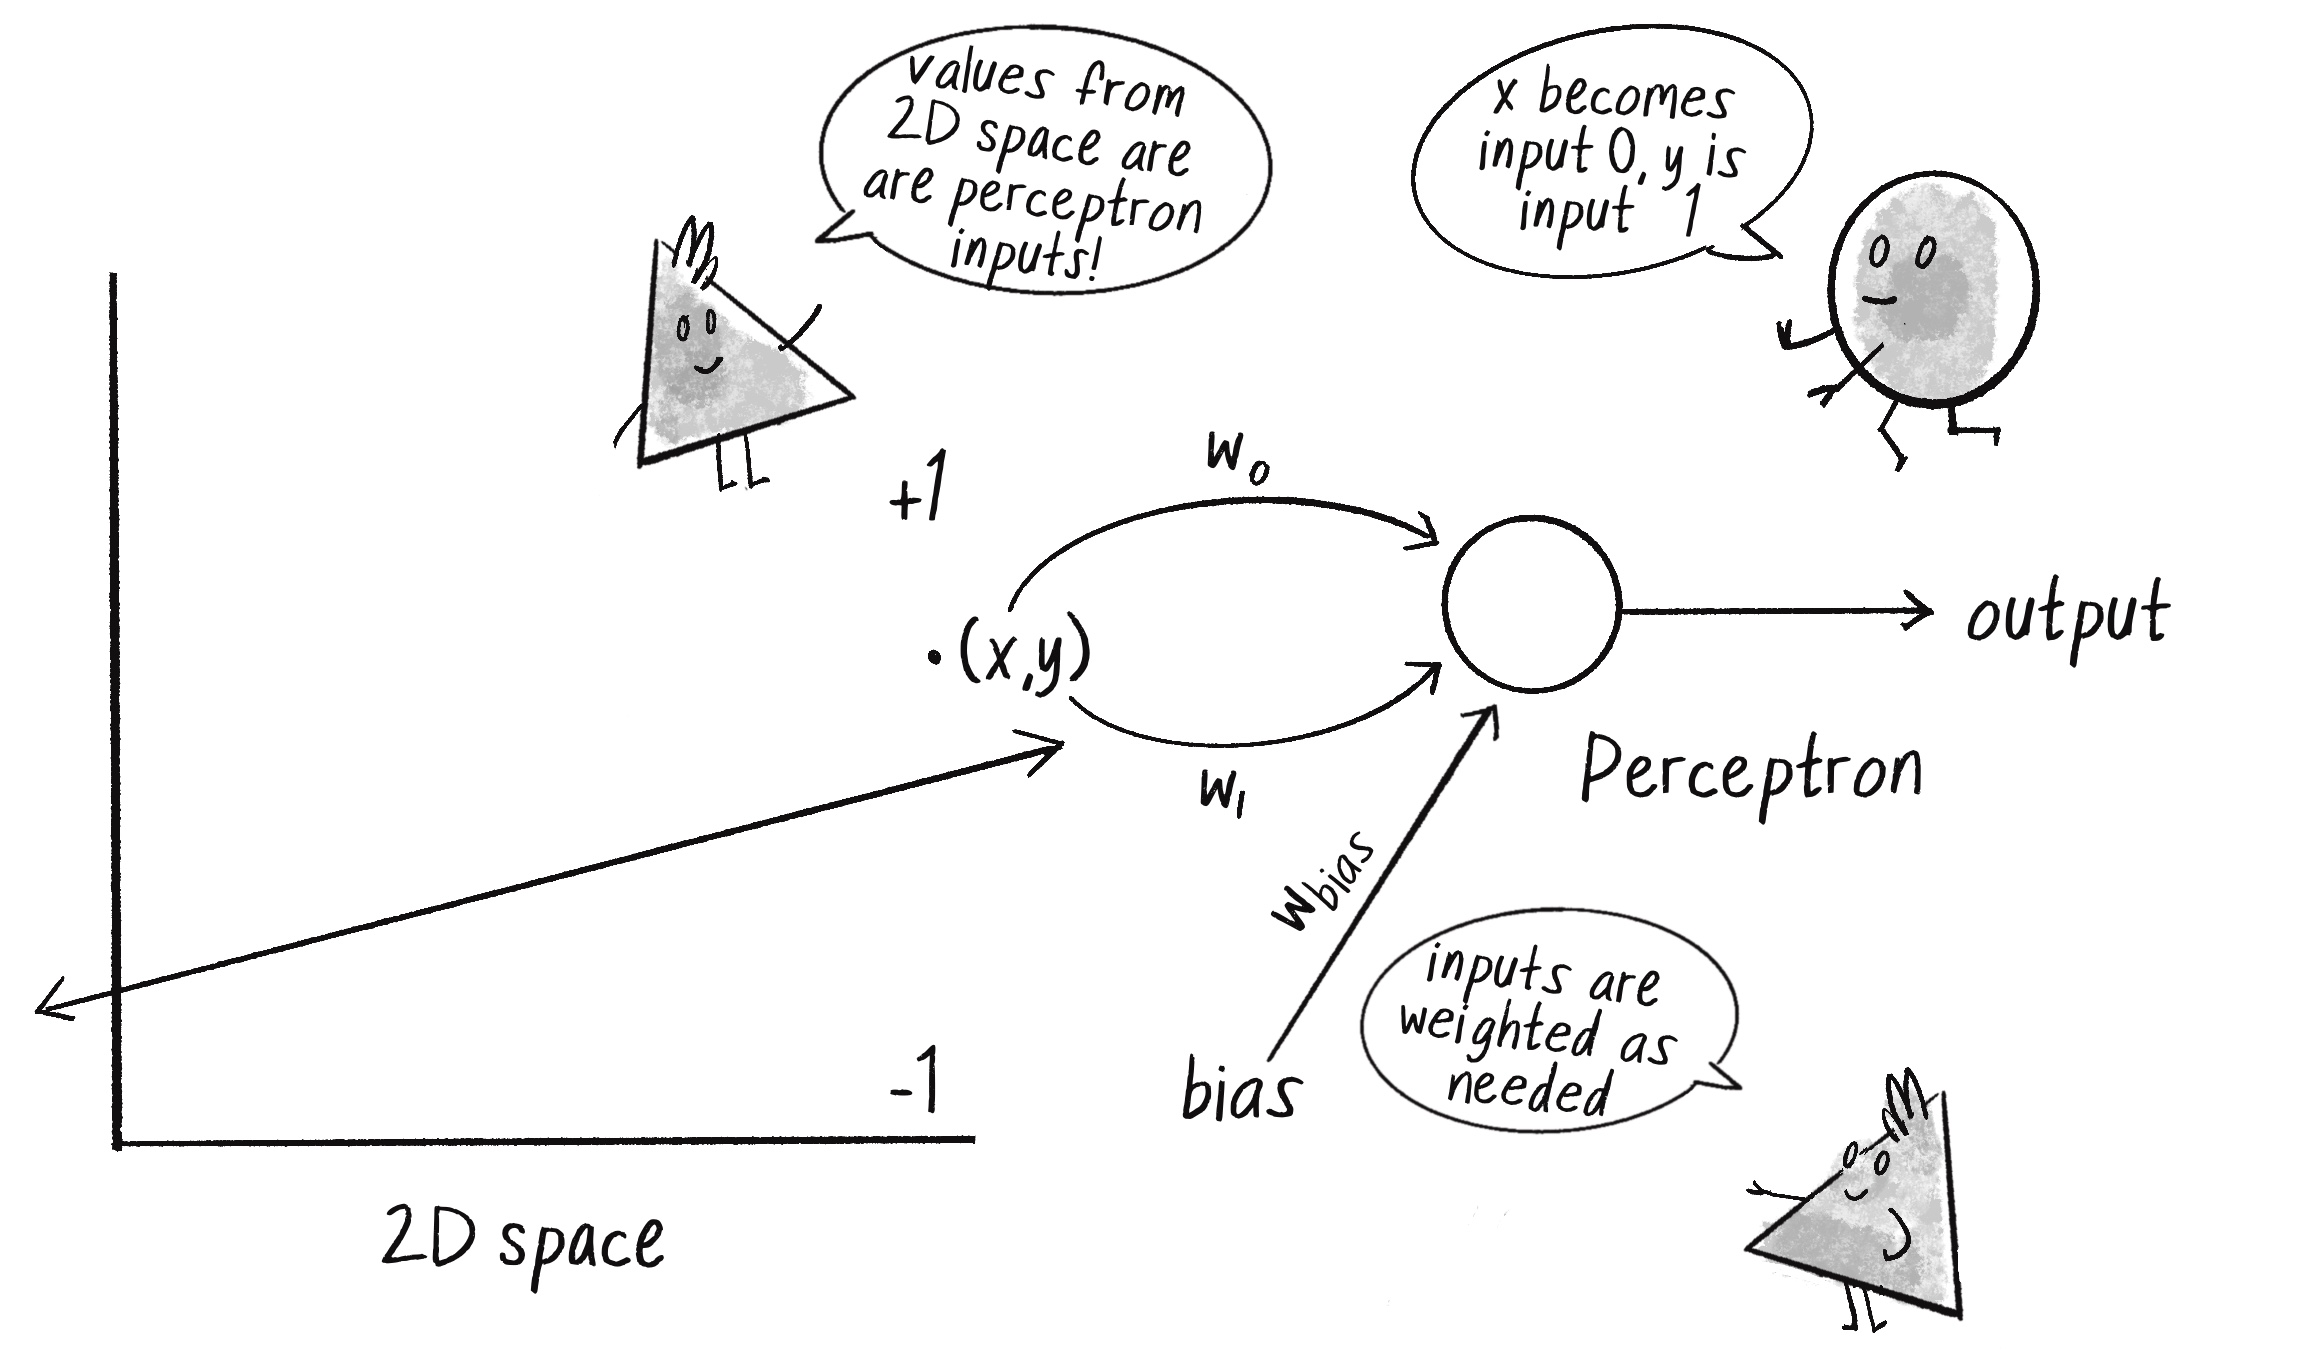 values from
2D space are
are perceptron
inputs!
x becomes
input 0, y is
input 1
+1
w₀
.(x,y)
output
w₁
Perceptron
wbias
inputs are
weighted as
needed
-1
bias
2D space